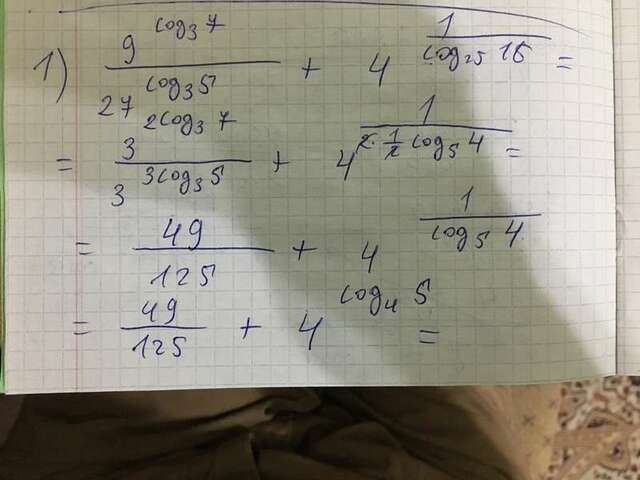 1) 9^{log_3 7} / 27^{log_3 5} + 4^{1 / log_{25} 16} =
= 3^{2log_3 7} / 3^{3log_3 5} + 4^{1 / (2·1/2 log_5 4)} =
= 49/125 + 4^{1 / log_5 4}
= 49/125 + 4^{log_4 5} =